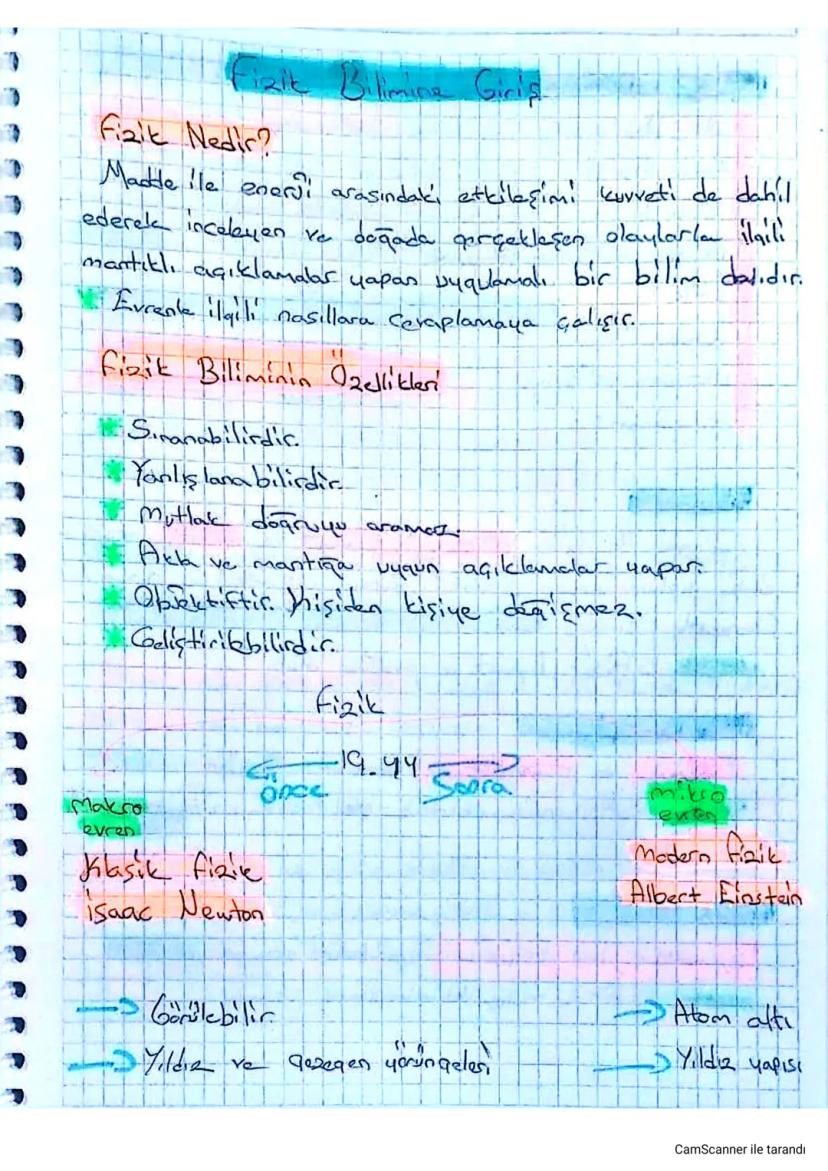 Fizik Bilimine Giriş
Fizik Nedir?
Madde ile enerji arasındaki etkileşimi kuvveti de dahil
ederek inceleyen ve doğada gerçekleşen olaylarla ilgili
mantıklı açıklamalar yapan uygulamalı bir bilim dalıdır.
Evrenle ilgili nasıllara cevaplamaya çalışır.
Fizik Biliminin Özellikleri
Sınanabilirdir.
Yanlışlanabilirdir.
Mutlak doğruyu aramaz.
Akla ve mantığa uygun açıklamalar yapar.
Objektiftir. Kişiden kişiye değişmez.
Geliştirilebilirdir.
Fizik
19.yy
önce Sonra
Makro
evren
mikro
evren
Klasik fizik
isaac Newton
Modern fizik
Albert Einstein
Görülebilir
Atom altı
Yıldız ve gezegen yörüngeleri
Yıldız yapısı
CamScanner ile tarandı